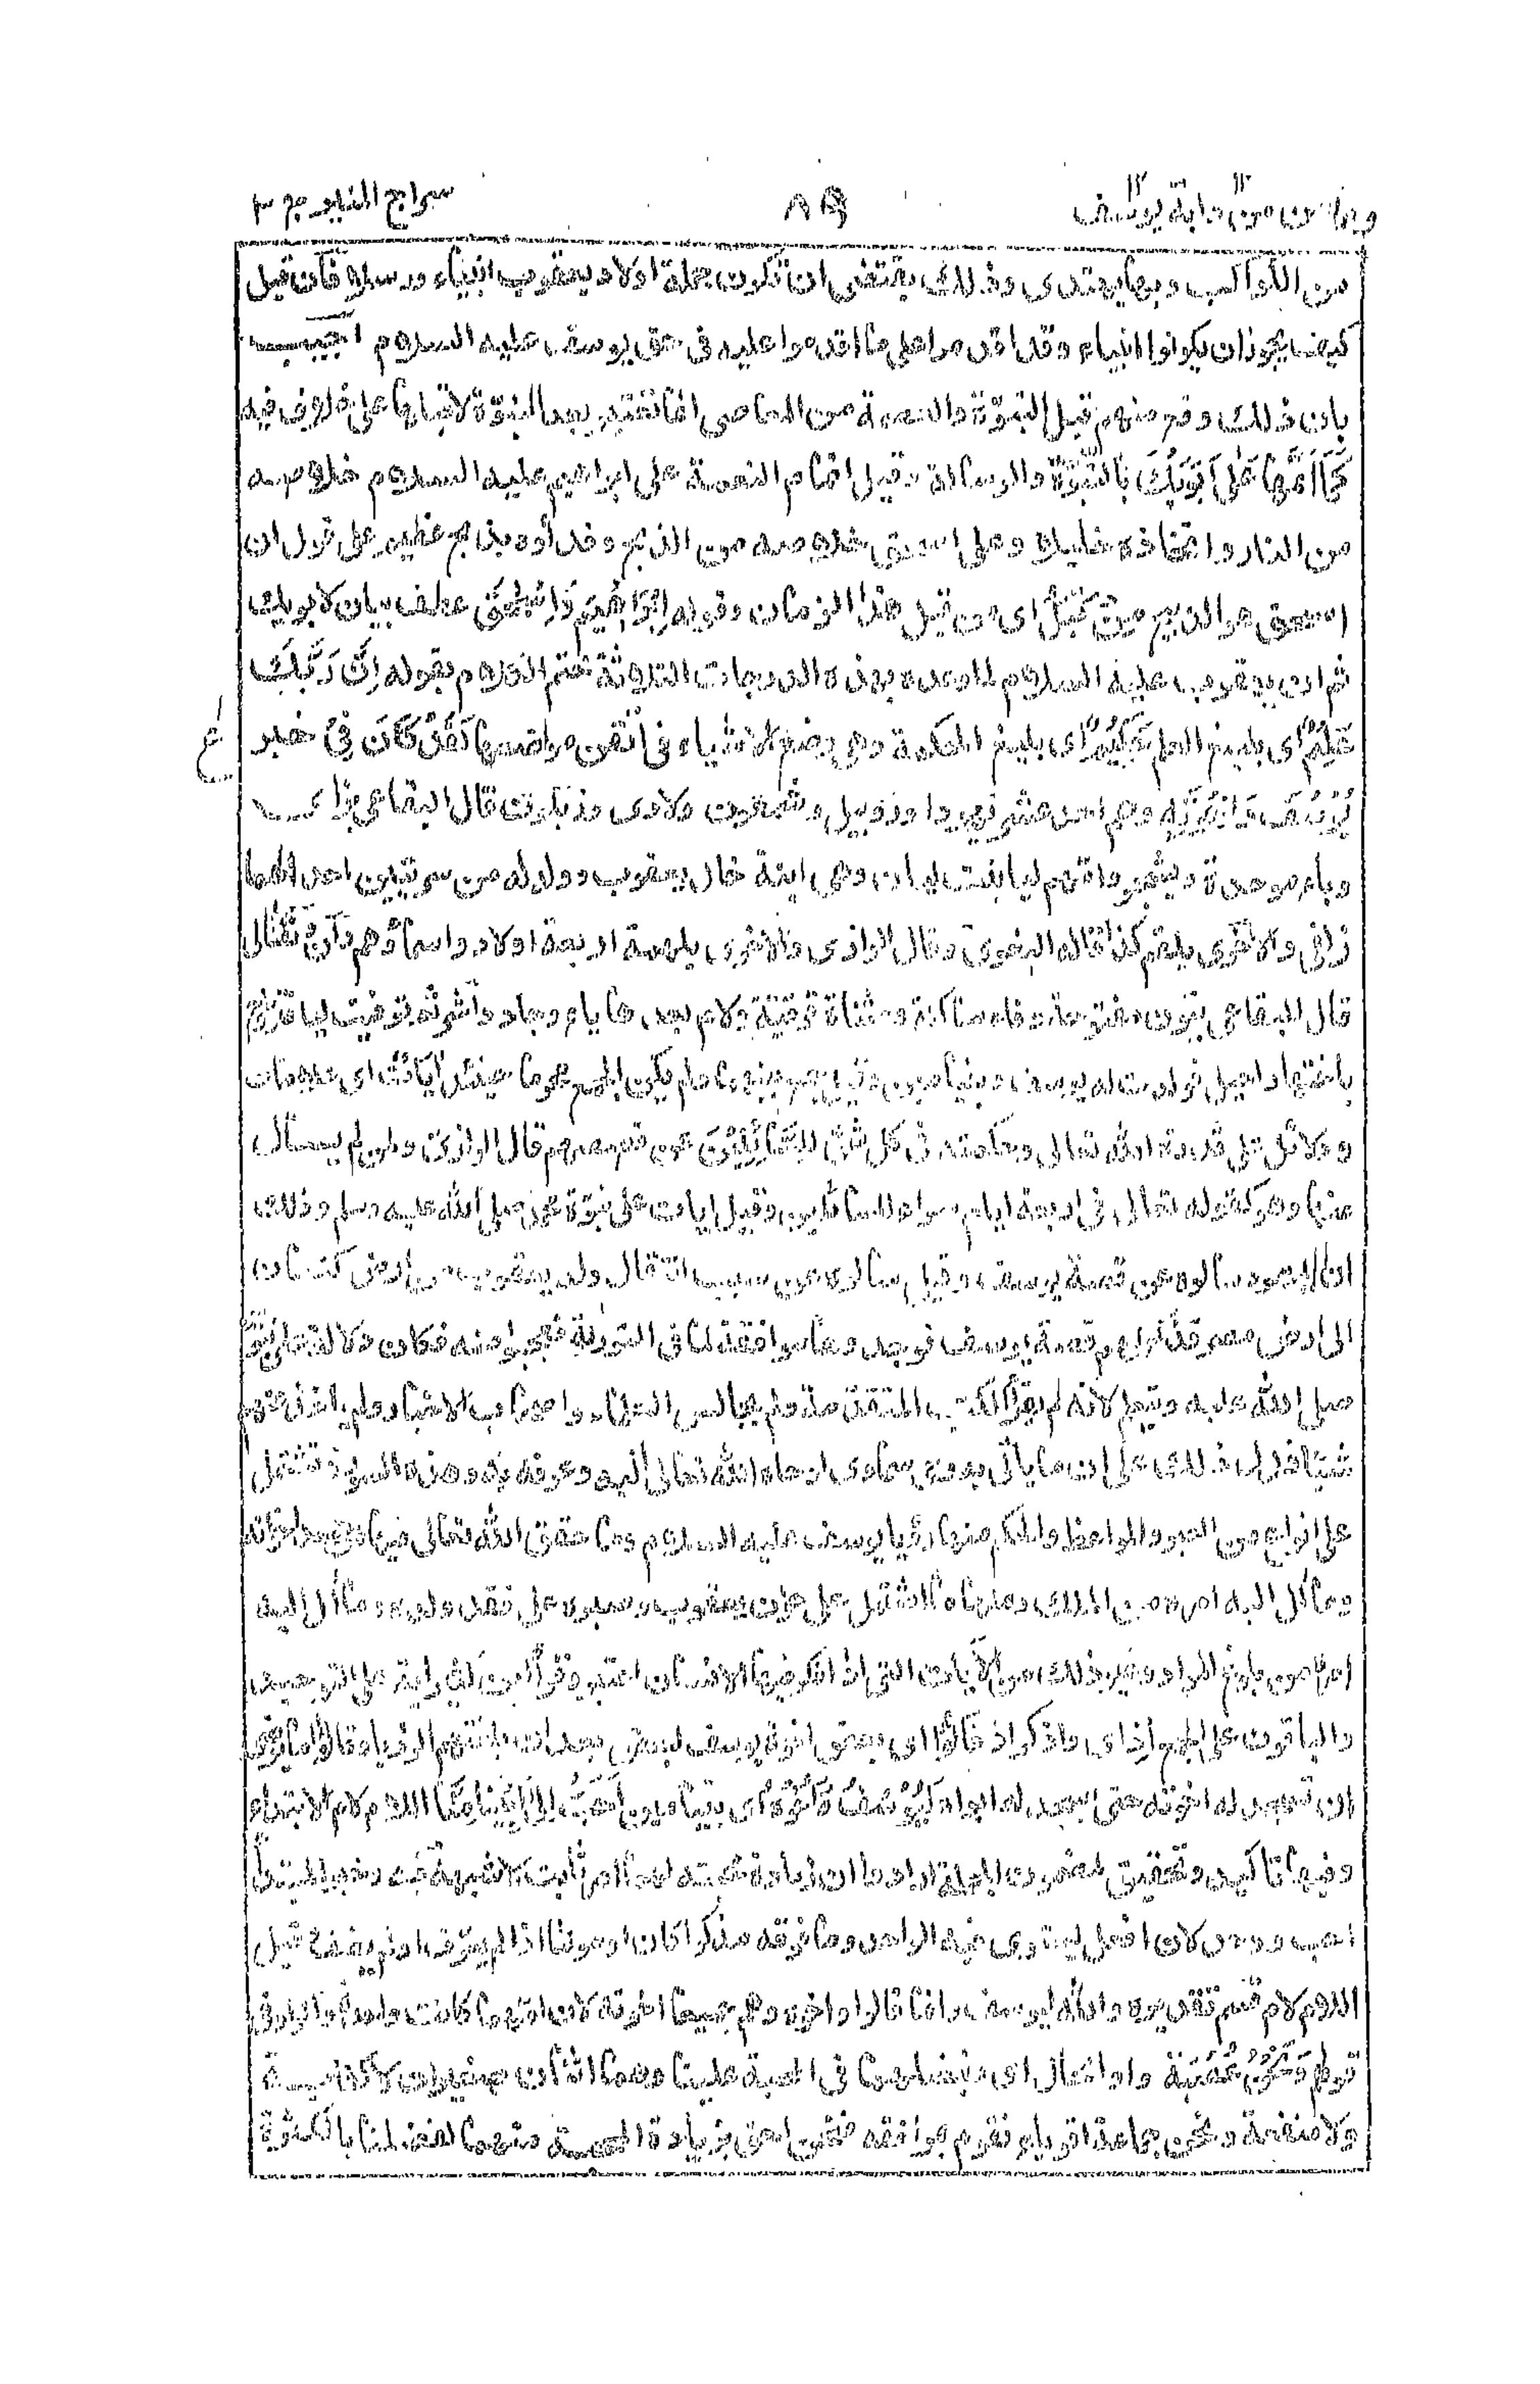 ومامن دابة يوسف ٨٩ سراج المنير ج ٣
من الكواكب وبها يهتدى وذلك يقتضى ان تكون جملة اولاد يعقوب انبياء ورسلا فان قيل
كيف يجوز ان يكونوا انبياء وقد اقدموا على ما اقدموا عليه فى حق يوسف عليه السلام اجيب
بان ذلك وقع منهم قبل النبوّة والعصمة من المعاصى انما تعتبر بعد النبوّة لا قبلها على خلاف فيه
كَمَا اَتَمَّهَا عَلٰى اَبَوَيْكَ بالنبُوّة والرسالة وقيل اتمام النعمة على ابراهيم عليه السلام خلاصه
من النار واتخاذه خليلا وعلى اسحق خلاصه من الذبح وفداؤه بذبح عظيم على قول ان
اسحق هو الذبيح مِنْ قَبْلُ اى من قبل هذا الزمان وقوله اِبْرَاهِيْمَ وَاِسْحٰقَ عطف بيان لابويك
ثم ان يعقوب عليه السلام لما وعده بهذه الدرجات الثلاثة ختم الكلام بقوله اِنَّ رَبَّكَ
عَلِيْمٌ اى بليغ العلم حَكِيْمٌ اى بليغ الحكمة وهى وضع الاشياء فى اتقن مواضعها لَقَدْ كَانَ فِىْ خبر
يُوْسُفَ وَاِخْوَتِهٖ وهم احد عشر يهودا وروبيل وشمعون ولاوى وزبلون قال البقاعى بزاى
وباء موحدة ويشجر وامّهم ليا بنت ليان وهى ابنة خال يعقوب وولد له من سريتين احداهما
زلفى والاخرى يلهم كذا قاله البغوى وقال الرازى والاخرى بلهمة اربعة اولاد واسماؤهم دان ونفتالى
قال البقاعى بنون مفتوحة وفاء ساكنة ومثناة فوقية ولام بعدها ياء وجاد واشر ثم توفيت ليا فتزوّج
باختها راحيل فولدت له يوسف وبنيامين وقيل جمع بينهما ولم يكن الجمع محرما حينئذ اٰيَاتٌ اى علامات
ودلائل على قدرة الله تعالى وحكمته فى كل شئ لِلسَّائِلِيْنَ عن قصصهم قال الرازى ولمن لم يسأل
عنها وهو كقوله تعالى فى اربعة ايام سواء للسائلين وقيل ايات على نبوّة محمد صلى الله عليه وسلم وذلك
ان اليهود سالوه عن قصة يوسف وقيل سالوه عن سبب انتقال ولد يعقوب من ارض كنعان
الى ارض مصر فذكر لهم قصة يوسف فوجدوها موافقة لما فى التورٰىة فعجبوا منه فكان دلالة على نبوّته
صلى الله عليه وسلم لانه لم يقرأ الكتب المتقدّمة ولم يجالس العلماء واصحاب الاخبار ولم ياخذ عنهم
شيئا فدل ذلك على ان ما يأتى به وحى سماوى اوحاه الله تعالى اليه وعرفه به وهذه السورة تشتمل
على انواع من العبر والمواعظ والحكم منها رؤيا يوسف عليه السلام وما حقق الله تعالى فيها ومنها حسد اخوته
وما آل اليه امره من الملك ومنها ما اشتمل على حزن يعقوب وصبره على فقد ولده وما آل اليه
امره من بلوغ المراد وغير ذلك من الآيات التى اذا فكر فيها الانسان اعتبر وقرأ ابن كثير اية على التوحيد
والباقون على الجمع اِذْ اى واذكر اذ قَالُوْا اى بعض اخوة يوسف لبعض بعد ان بلغتهم الرؤيا وقالوا ما يرضى
ان تسجد له اخوته حتى يسجد له ابواه لَيُوْسُفُ وَاَخُوْهُ اى بنيامين اَحَبُّ اِلٰى اَبِيْنَا مِنَّا اللام لام الابتداء
وفيها تاكيد وتحقيق لمضمون الجملة ارادوا ان زيادة محبته لهما امر ثابت لا شبهة فيه وخبر المبتدأ
احب ووحد لان افعل يستوى فيه الواحد وما فوقه مذكرا كان او مؤنثا اذا لم يعرّف او لم يضف وقيل
اللام لام قسم تقديره والله ليوسف وانما قالوا واخوه وهم جميعا اخوته لان امّهما كانت واحدة والواو فى
قولهم وَنَحْنُ عُصْبَةٌ واو الحال اى يفضلهما فى المحبة علينا وهما اثنان صغيران لا كفاية
ولا منفعة ونحن جماعة اقوياء نقوم بمرافقه فنحن احق بزيادة المحبة منهما لفضلنا بالكثرة
ع